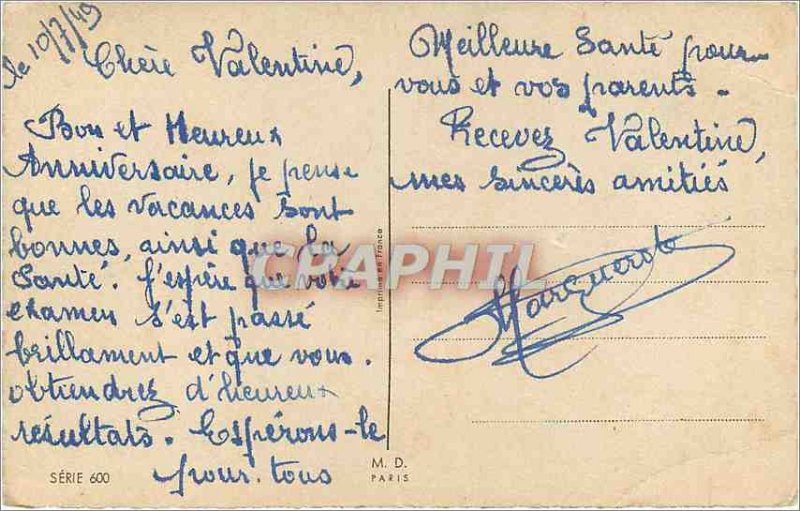 le 10/7/49
Chère Valentine,
Bon et Heureux
Anniversaire, je pense
que les vacances sont
bonnes, ainsi que la
santé. J'espère que votre
examen s'est passé
brillament et que vous.
obtiendrez d'heureux
résultats. Espérons-le
pour. tous
Meilleure Santé pour
vous et vos parents.
Recevez Valentine,
mes sincères amitiés
SÉRIE 600
M. D.
PARIS
Imprimé en France
CPAPHIL